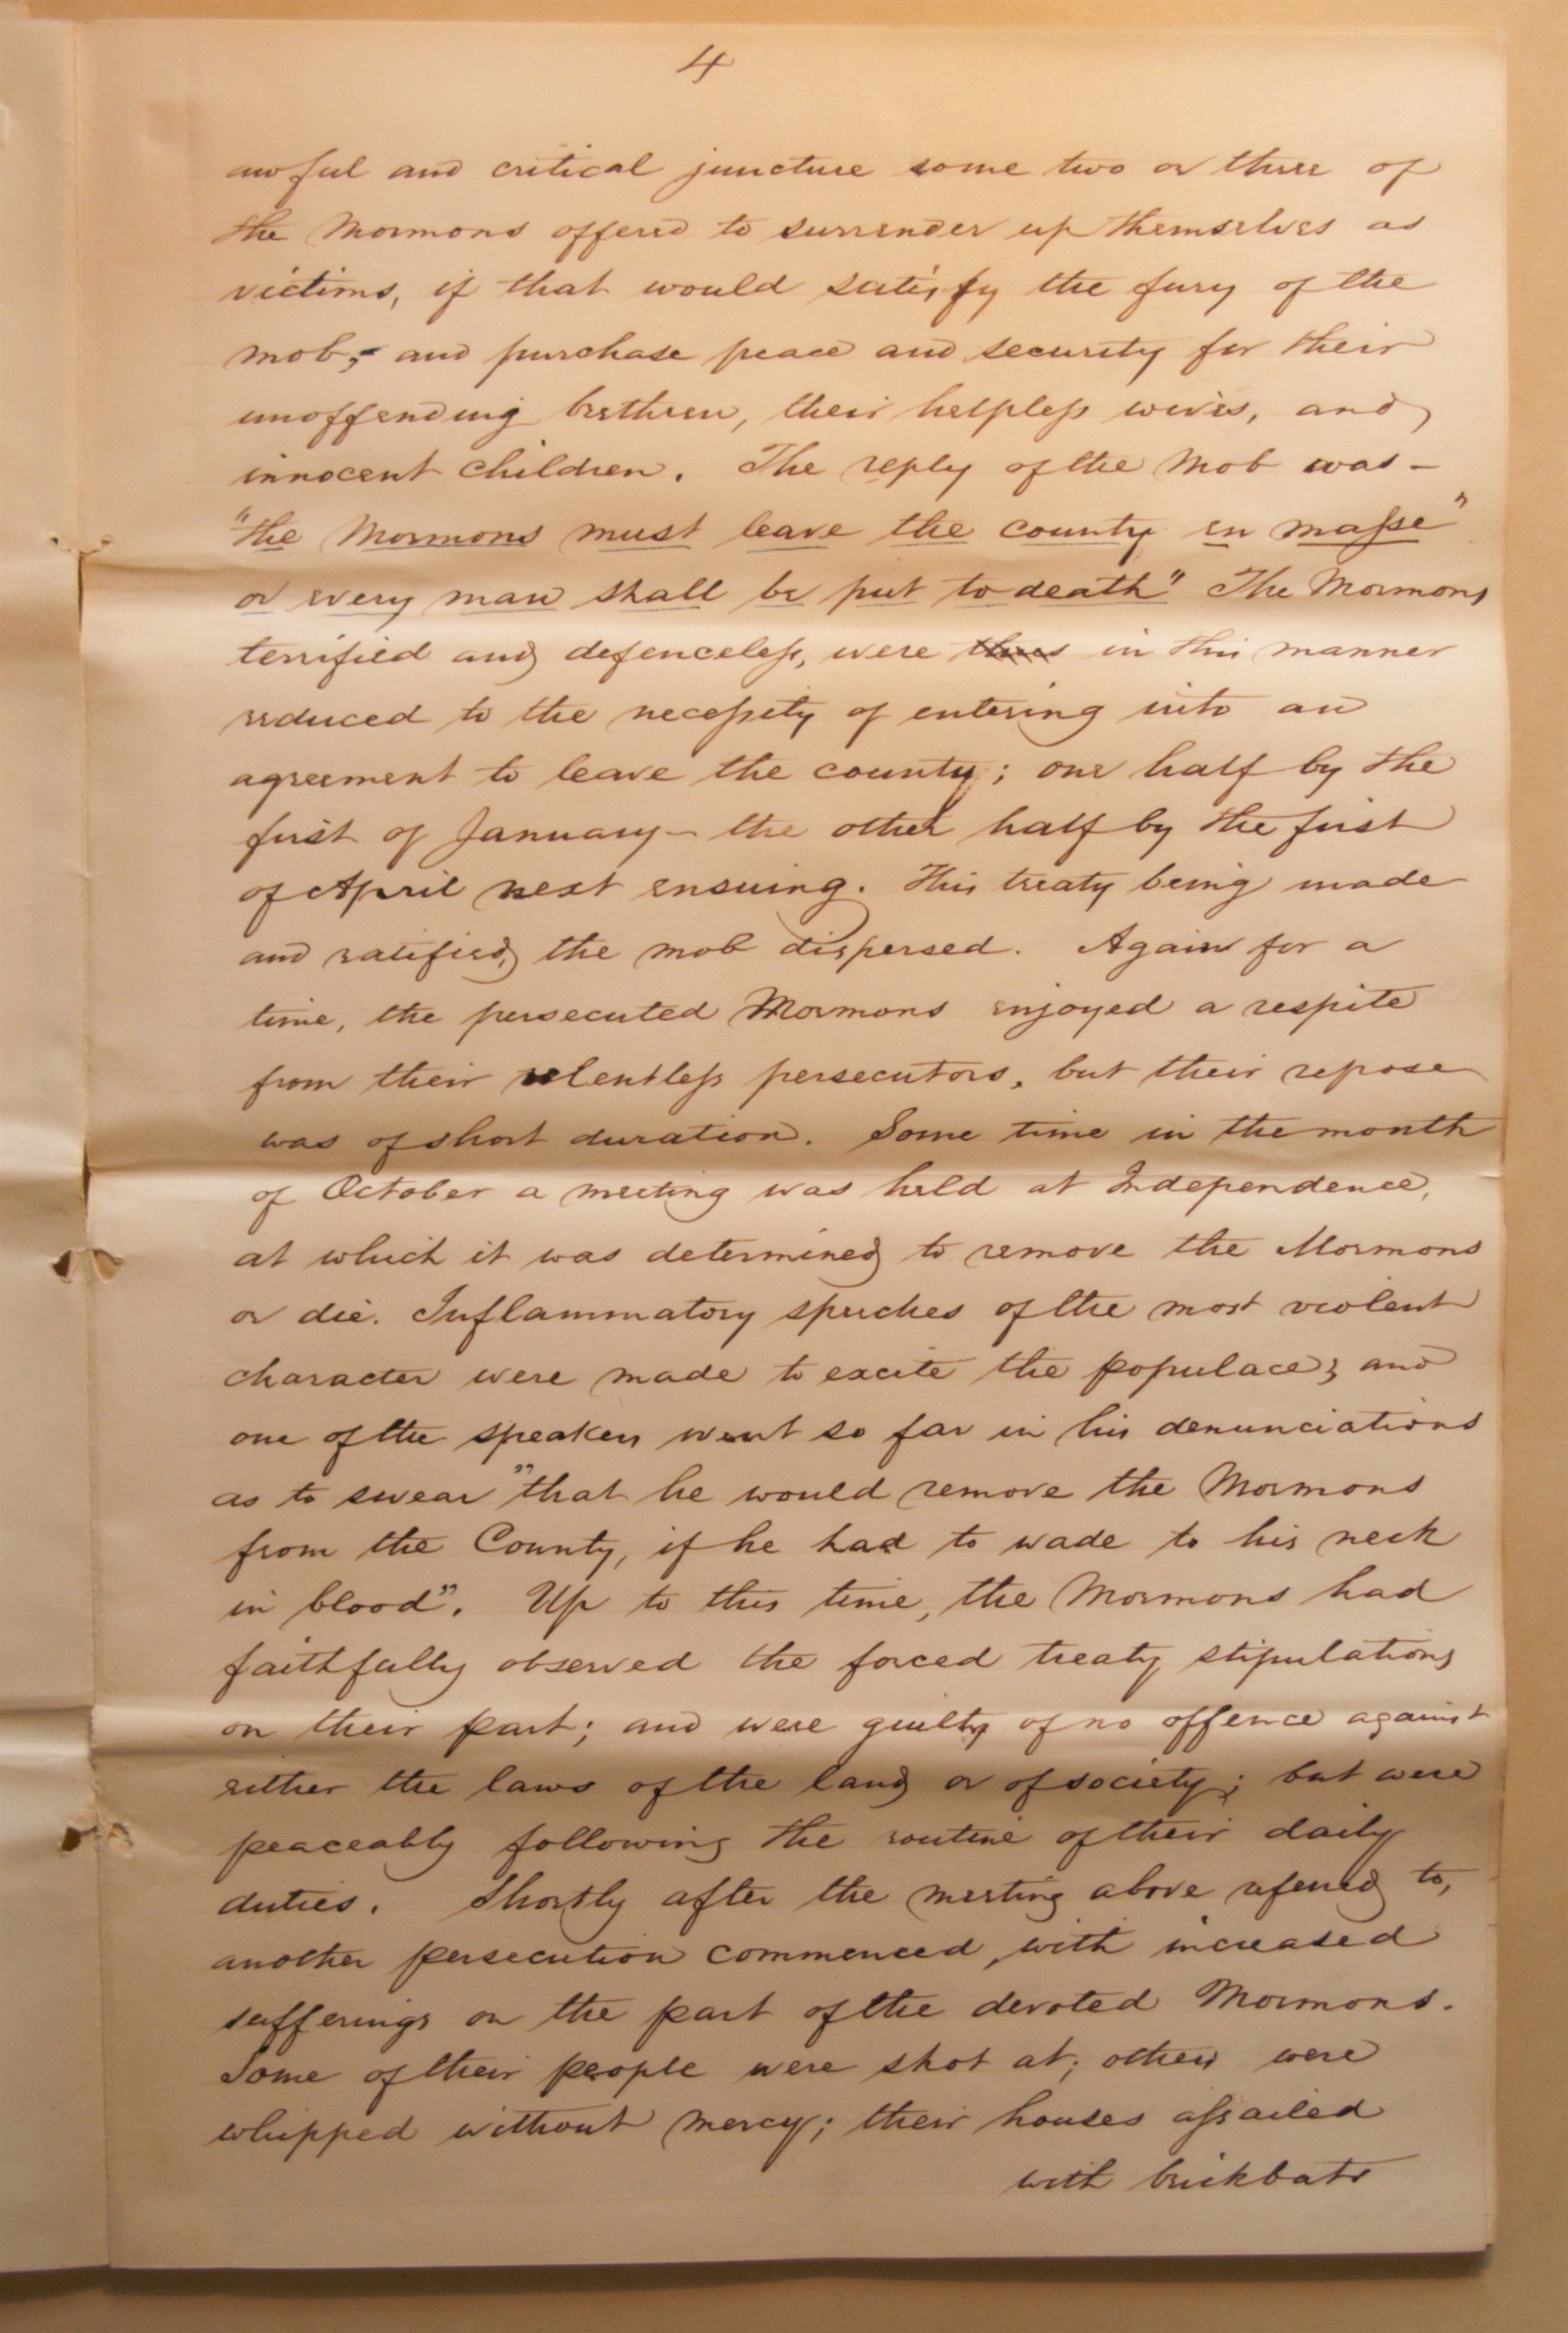 4
awful and critical juncture some two or three of
the Mormons offered to surrender up themselves as
victims, if that would satisfy the fury of the
mob, and purchase peace and security for their
unoffending brethren, their helpless wives, and
innocent children. The reply of the Mob was –
"the Mormons must leave the county en masse"
or every man shall be put to death" The Mormons
terrified and defenceless, were thus in this manner
reduced to the necessity of entering into an
agreement to leave the county; one half by the
first of January – the other half by the first
of April next ensuing. This treaty being made
and ratified, the mob dispersed. Again for a
time, the persecuted Mormons enjoyed a respite
from their relentless persecutors, but their repose
was of short duration. Some time in the month
of October a meeting was held at Independence,
at which it was determined to remove the Mormons
or die. Inflammatory speeches of the most violent
character were made to excite the populace; and
one of the speakers went so far in his denunciations
as to swear "that he would remove the Mormons
from the County, if he had to wade to his neck
in blood". Up to this time, the Mormons had
faithfully observed the forced treaty stipulations
on their part; and were guilty of no offence against
either the laws of the land or of society; but were
peaceably following the routine of their daily
duties. Shortly after the meeting above refered to,
another persecution commenced, with increased
sufferings on the part of the devoted Mormons.
Some of their people were shot at; others were
whipped without mercy; their houses assailed
with brickbats